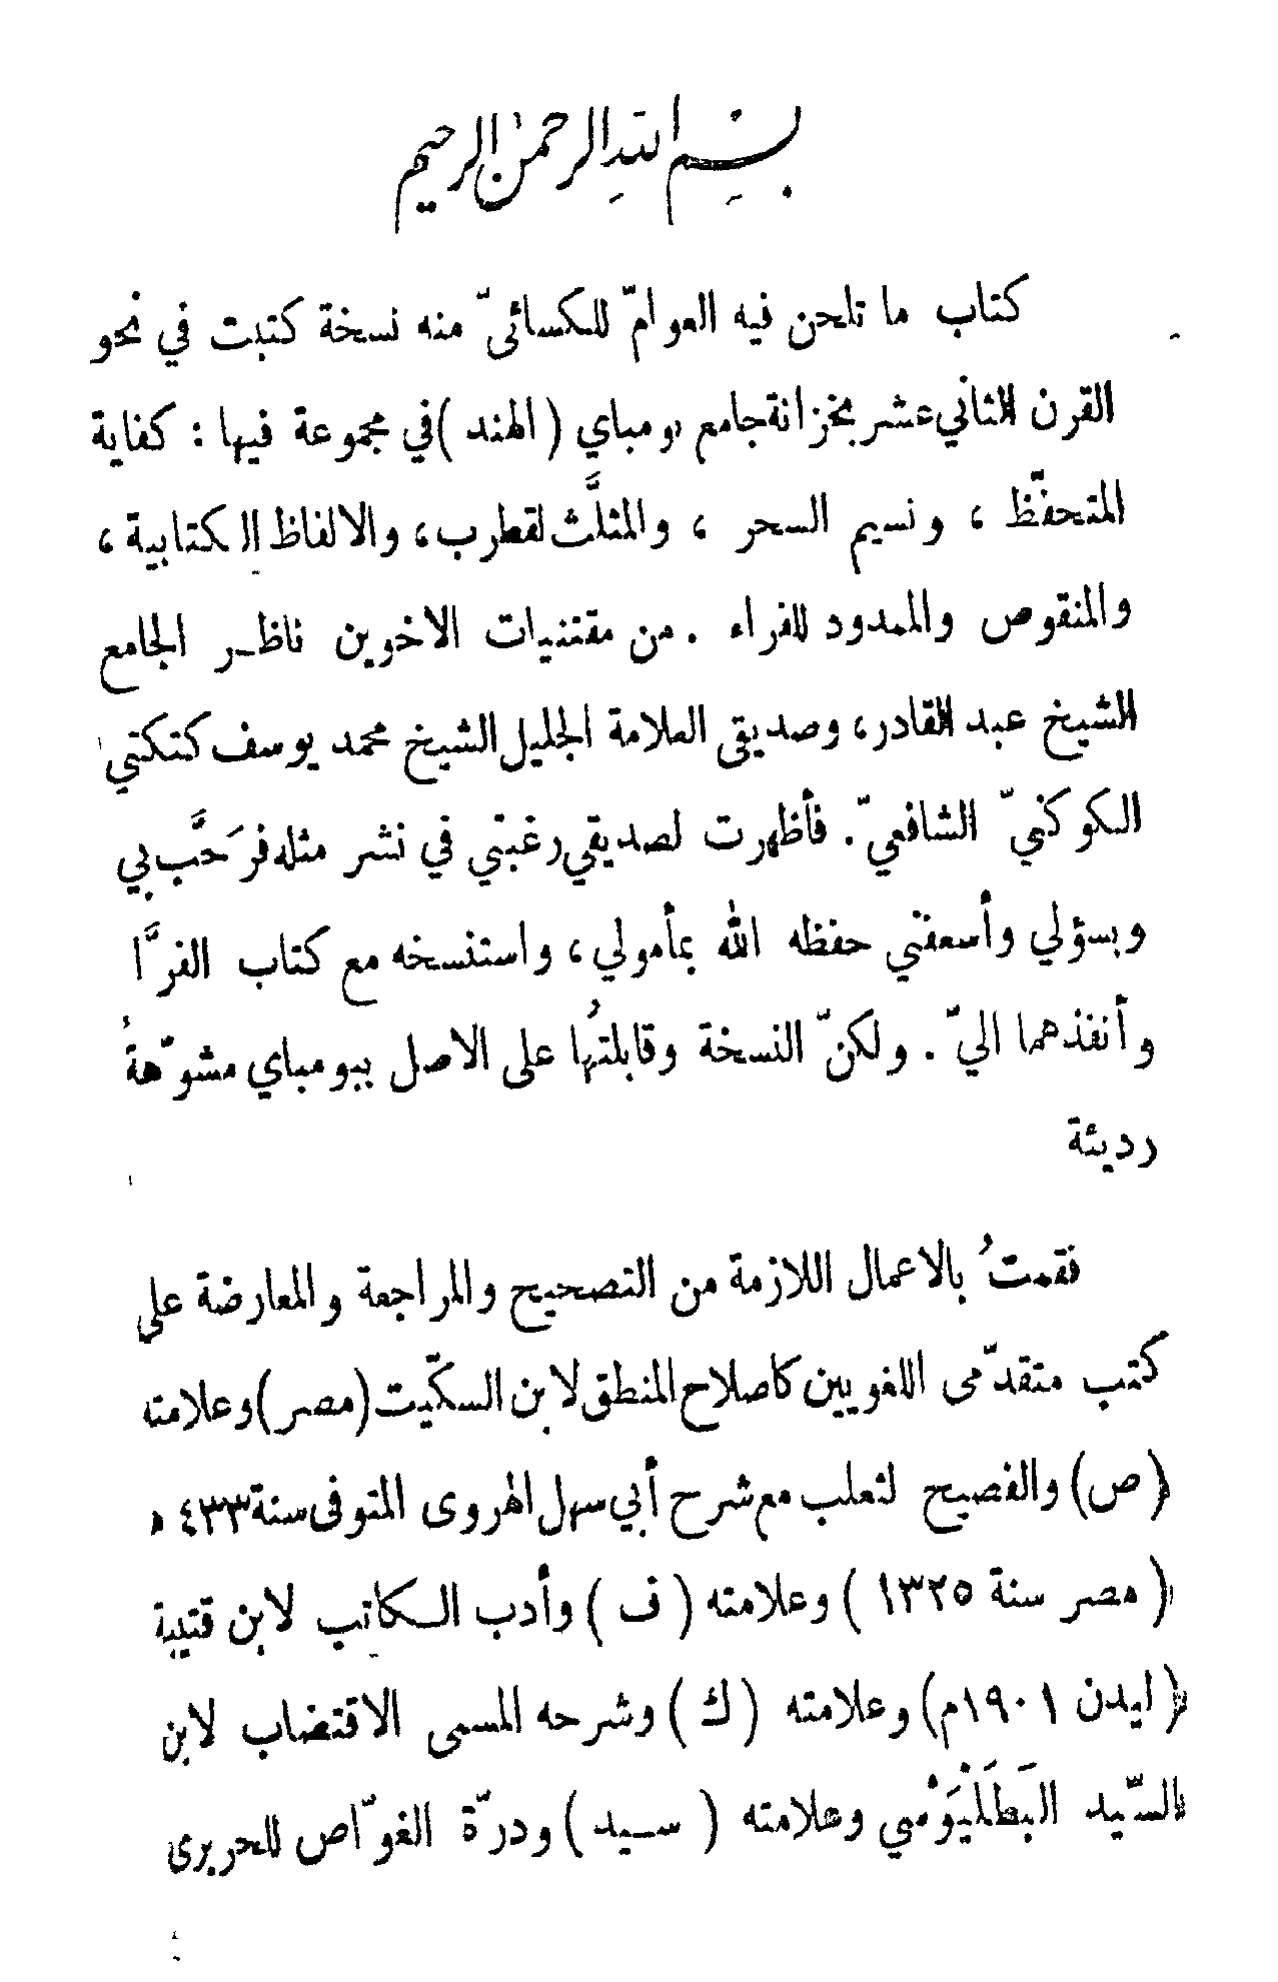 بسم الله الرحمن الرحيم
كتاب ما تلحن فيه العوامّ للكسائىّ منه نسخة كتبت في نحو
القرن الثاني عشر بخزانة جامع بومباي ( الهند ) في مجموعة فيها : كفاية
المتحفّظ ، ونسيم السحر ، والمثلَّث لقطرب، والالفاظ الكتابية ،
والمنقوص والممدود للفراء . من مقتنيات الاخوين ناظر الجامع
الشيخ عبد القادر، وصديقى العلامة الجليل الشيخ محمد يوسف كتكتي
الكوكنيّ الشافعيّ. فأظهرت لصديقي رغبتي في نشر مثله فرَحَّب بي
وبسؤلي وأسعفني حفظه الله بمأمولي، واستنسخه مع كتاب الفرَّا
وأنفذهما اليّ . ولكنّ النسخة وقابلتُها على الاصل ببومباي مشوّهةُ
رديئة
فقمتُ بالاعمال اللازمة من التصحيح والمراجعة والمعارضة على
كتب متقدّمى اللغويين كاصلاح المنطق لابن السكّيت (مصر) وعلامته
(ص) والفصيح لثعلب مع شرح أبي سهل الهروى المتوفى سنة ٤٣٣ ه
( مصر سنة ١٣٢٥ ) وعلامته ( ف ) وأدب الكاتب لابن قتيبة
( ليدن ١٩٠١م) وعلامته ( ك ) وشرحه المسمى الاقتضاب لابن
السّيد البَطَلْيَوْسي وعلامته ( سيد ) ودرّة الغوّاص للحريرى